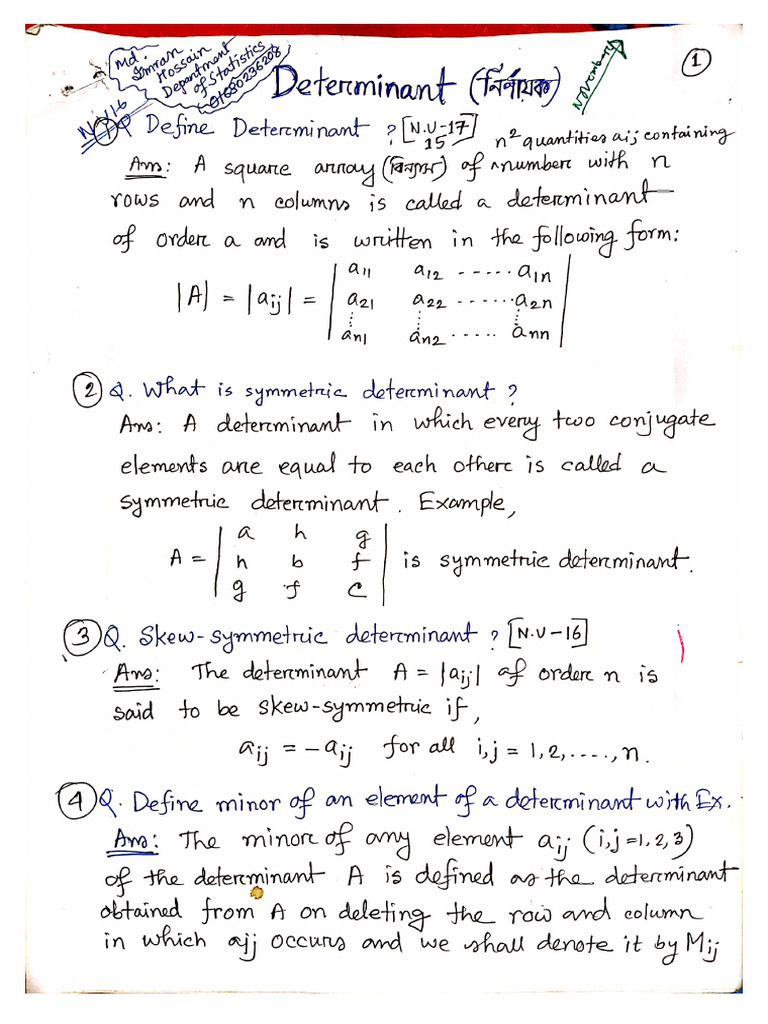 Md.
Imran
Hossain
Department
of Statistics
01680236208
Determinant (নির্ণায়ক)
1
Define Determinant ? [N.U-17]
15
n² quantities aij containing
Ans: A square array (বিন্যাস) of number with n
rows and n columns is called a determinant
of order a and is written in the following form:
|A| = |aij| = | a11 a12 ------ a1n |
| a21 a22 ------- a2n |
| an1 an2 ------ ann |
2 Q. What is symmetric determinant ?
Ans: A determinant in which every two conjugate
elements are equal to each other is called a
symmetric determinant. Example,
A = | a h g |
| h b f | is symmetric determinant.
| g f c |
3 Q. Skew-symmetric determinant ? [N.U-16]
Ans: The determinant A = |aij| of order n is
said to be skew-symmetric if,
aij = -aij for all i,j = 1, 2, ...., n.
4 Q. Define minor of an element of a determinant with Ex.
Ans: The minor of any element aij (i,j =1, 2, 3)
of the determinant A is defined as the determinant
obtained from A on deleting the row and column
in which aij occurs and we shall denote it by Mij